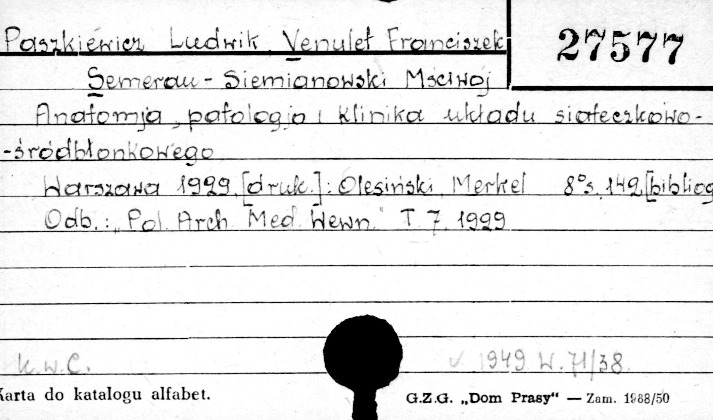 Paszkiewicz Ludwik, Venulet Franciszek
27577
Semerau-Siemianowski Mściwój
Anatomja, patologja i klinika układu siateczkowo-
-śródbłonkowego
Warszawa 1929, [druk.]: Olesiński, Merkel 8° s. 142, [bibliog
Odb.: "Pol. Arch. Med. Wewn." T. 7. 1929
K.w.C. v. 1949 W. 71/38
Karta do katalogu alfabet. G.Z.G. „Dom Prasy“ — Zam. 1988/50